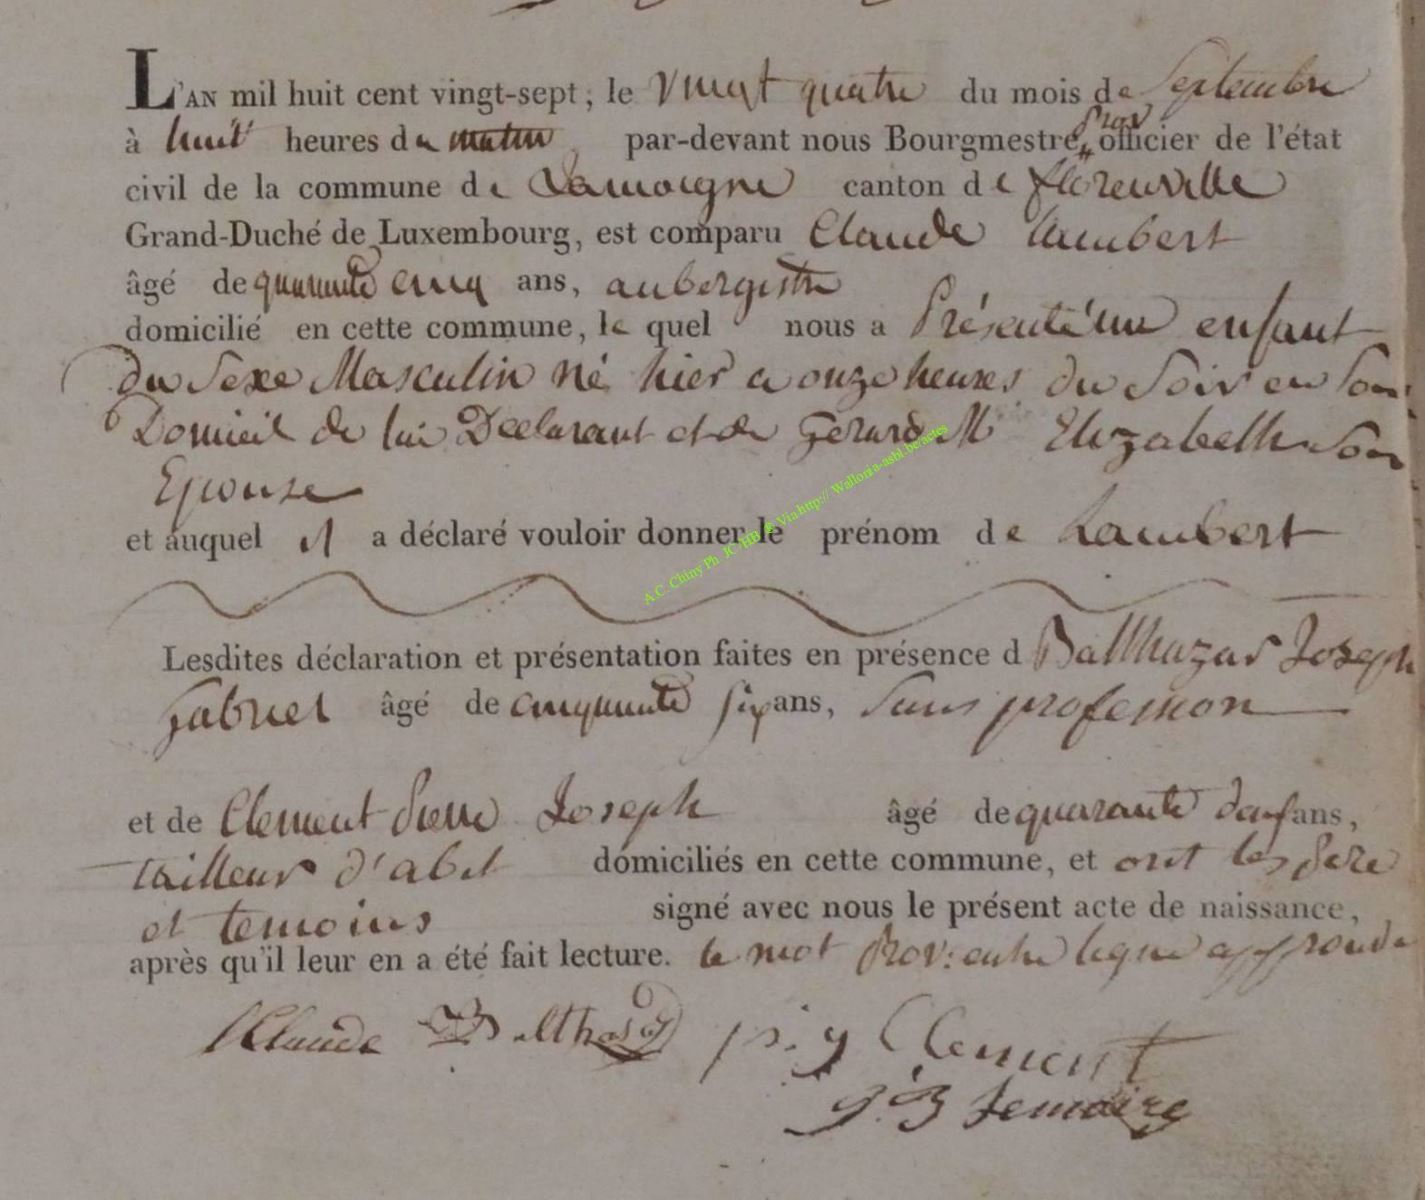 L'AN mil huit cent vingt-sept, le vingt quatre du mois de Septembre
à huit heures du matin par-devant nous Bourgmestre Prov officier de l'état
civil de la commune de Lamoigne canton de florenville
Grand-Duché de Luxembourg, est comparu Claude Lambert
âgé de quarante cinq ans, aubergiste
domicilié en cette commune, le quel nous a Présenté un enfant
du Sexe Masculin né hier a onze heures du Soir en Son
Domicil de lui Declarant et de Gerard M Elizabelh Son
Epouse
et auquel il a déclaré vouloir donner le prénom de Lambert
Lesdites déclaration et présentation faites en présence d Balthazar Joseph
Gabriel âgé de cinquante six ans, Sans profession
et de Clement Pierre Joseph âgé de quarante deux ans,
tailleur d'abit domiciliés en cette commune, et ont les Pere
et temoins signé avec nous le présent acte de naissance,
après qu'il leur en a été fait lecture. le mot Prov: entre ligne approuvé
lClaude Balthasar p.j Clement
J.B Lemaire
A.C. Chiny Ph. JC/HB © Via http:// Wallonia-asbl.be/actes